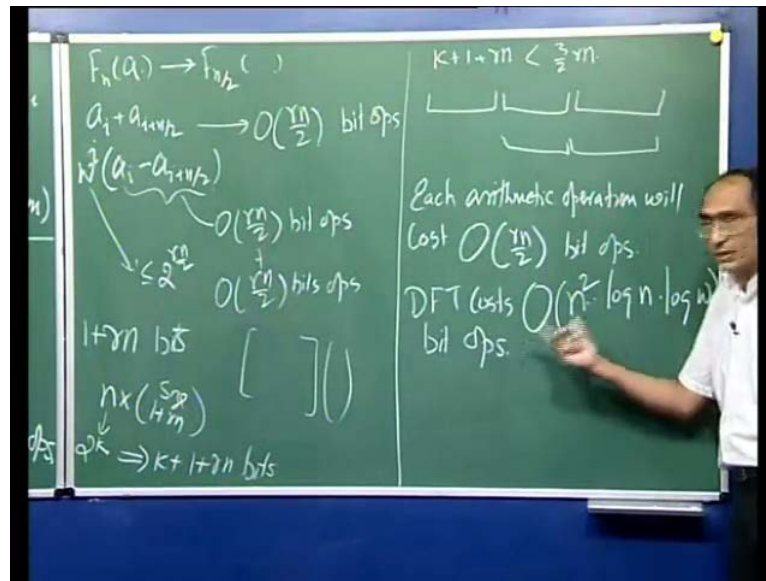 F_n(a_i) → F_{n/2} ( )
a_i + a_{i+n/2} → O(rn/2) bit ops
w^j(a_i - a_{i+n/2})
O(rn/2) bit ops
+
≤ 2^{rn/2}
O(rn/2) bits ops
1+rn bits
[ ] ( )
n×( 1+rn)
2^k ⇒ k+1+rn bits
k+1+rn < 3/2 rn.
Each arithmetic operation will
Cost O(rn/2) bit ops.
DFT Costs O(n²·log n·log w)
bit ops.
n)
ops